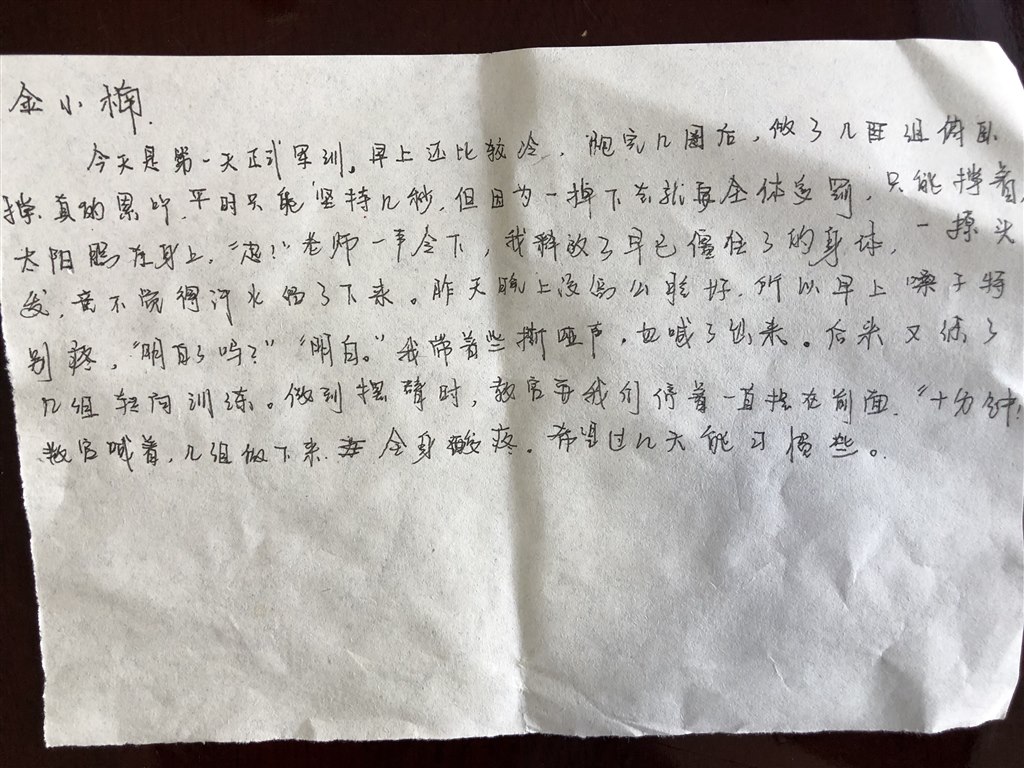 金小楠
今天是第一天正式军训。早上还比较冷，跑完几圈后，做了几组俯卧
撑，真的累吖，平时只能坚持几秒，但因为一掉下去就要全体受罚，只能撑着，
太阳照在身上，“起！”老师一声令下，我释放了早已僵住了的身体，一撩头
发，竟不觉得汗水留了下来。昨天晚上没写公睡好，所以早上嗓子特
别疼，“明白了吗？”“明白。”我带着些撕哑声，也喊了出来。后来又练了
几组转向训练。做到摆臂时，教官要我们停着一直摆在前面，“十分钟！
教官喊着，几组做下来 全身酸疼。希望过几天能习惯些。